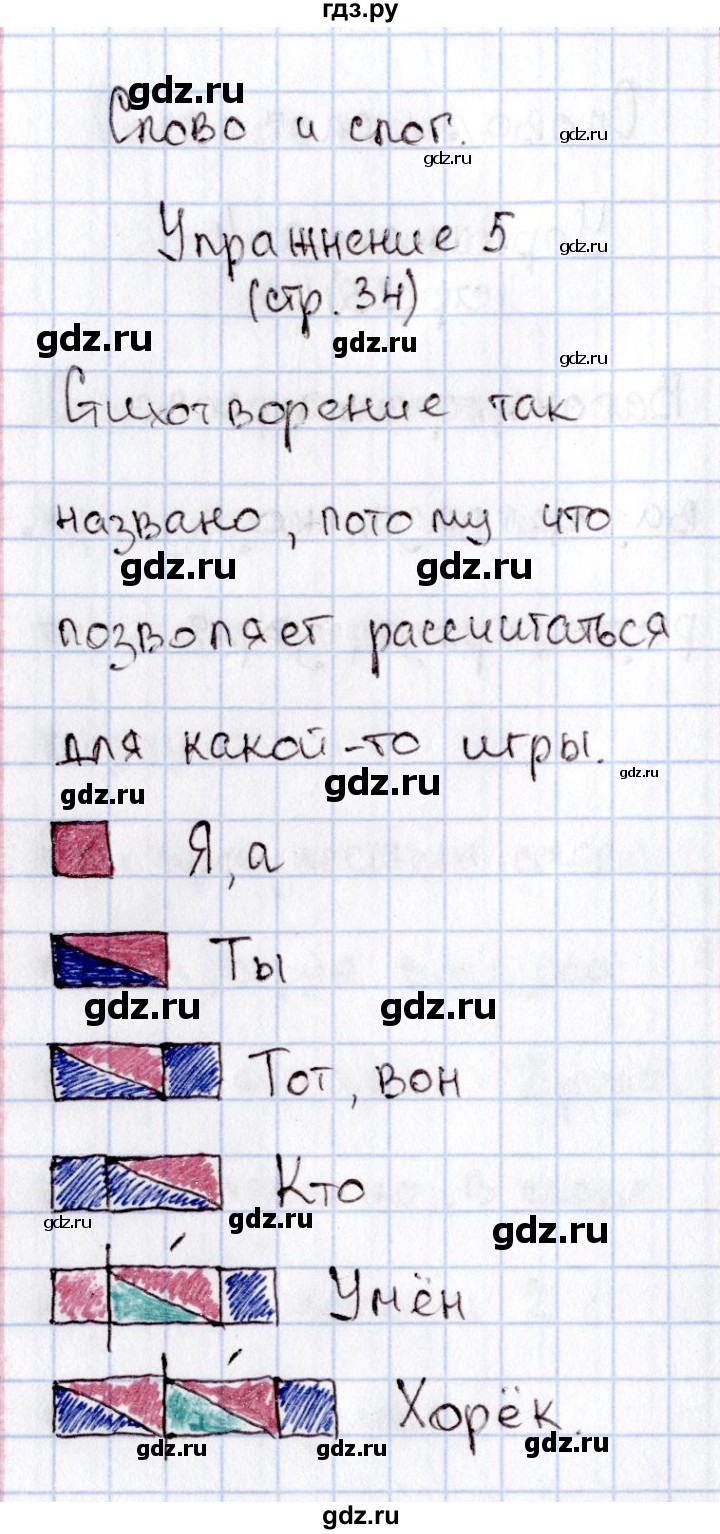 гдз.ру
gdz.ru
Слово и слог.
gdz.ru
gdz.ru
Упражнение 5
gdz.ru
(стр. 34)
gdz.ru
gdz.ru
gdz.ru
Стихотворение так
названо, потому что
gdz.ru
gdz.ru
позволяет рассчитаться
для какой-то игры.
gdz.ru
gdz.ru
gdz.ru
Я, а
Ты
gdz.ru
gdz.ru
Тот, вон
Кто
gdz.ru
gdz.ru
gdz.ru
Умён
Хорёк.
gdz.ru
gdz.ru
gdz.ru
gdz.ru